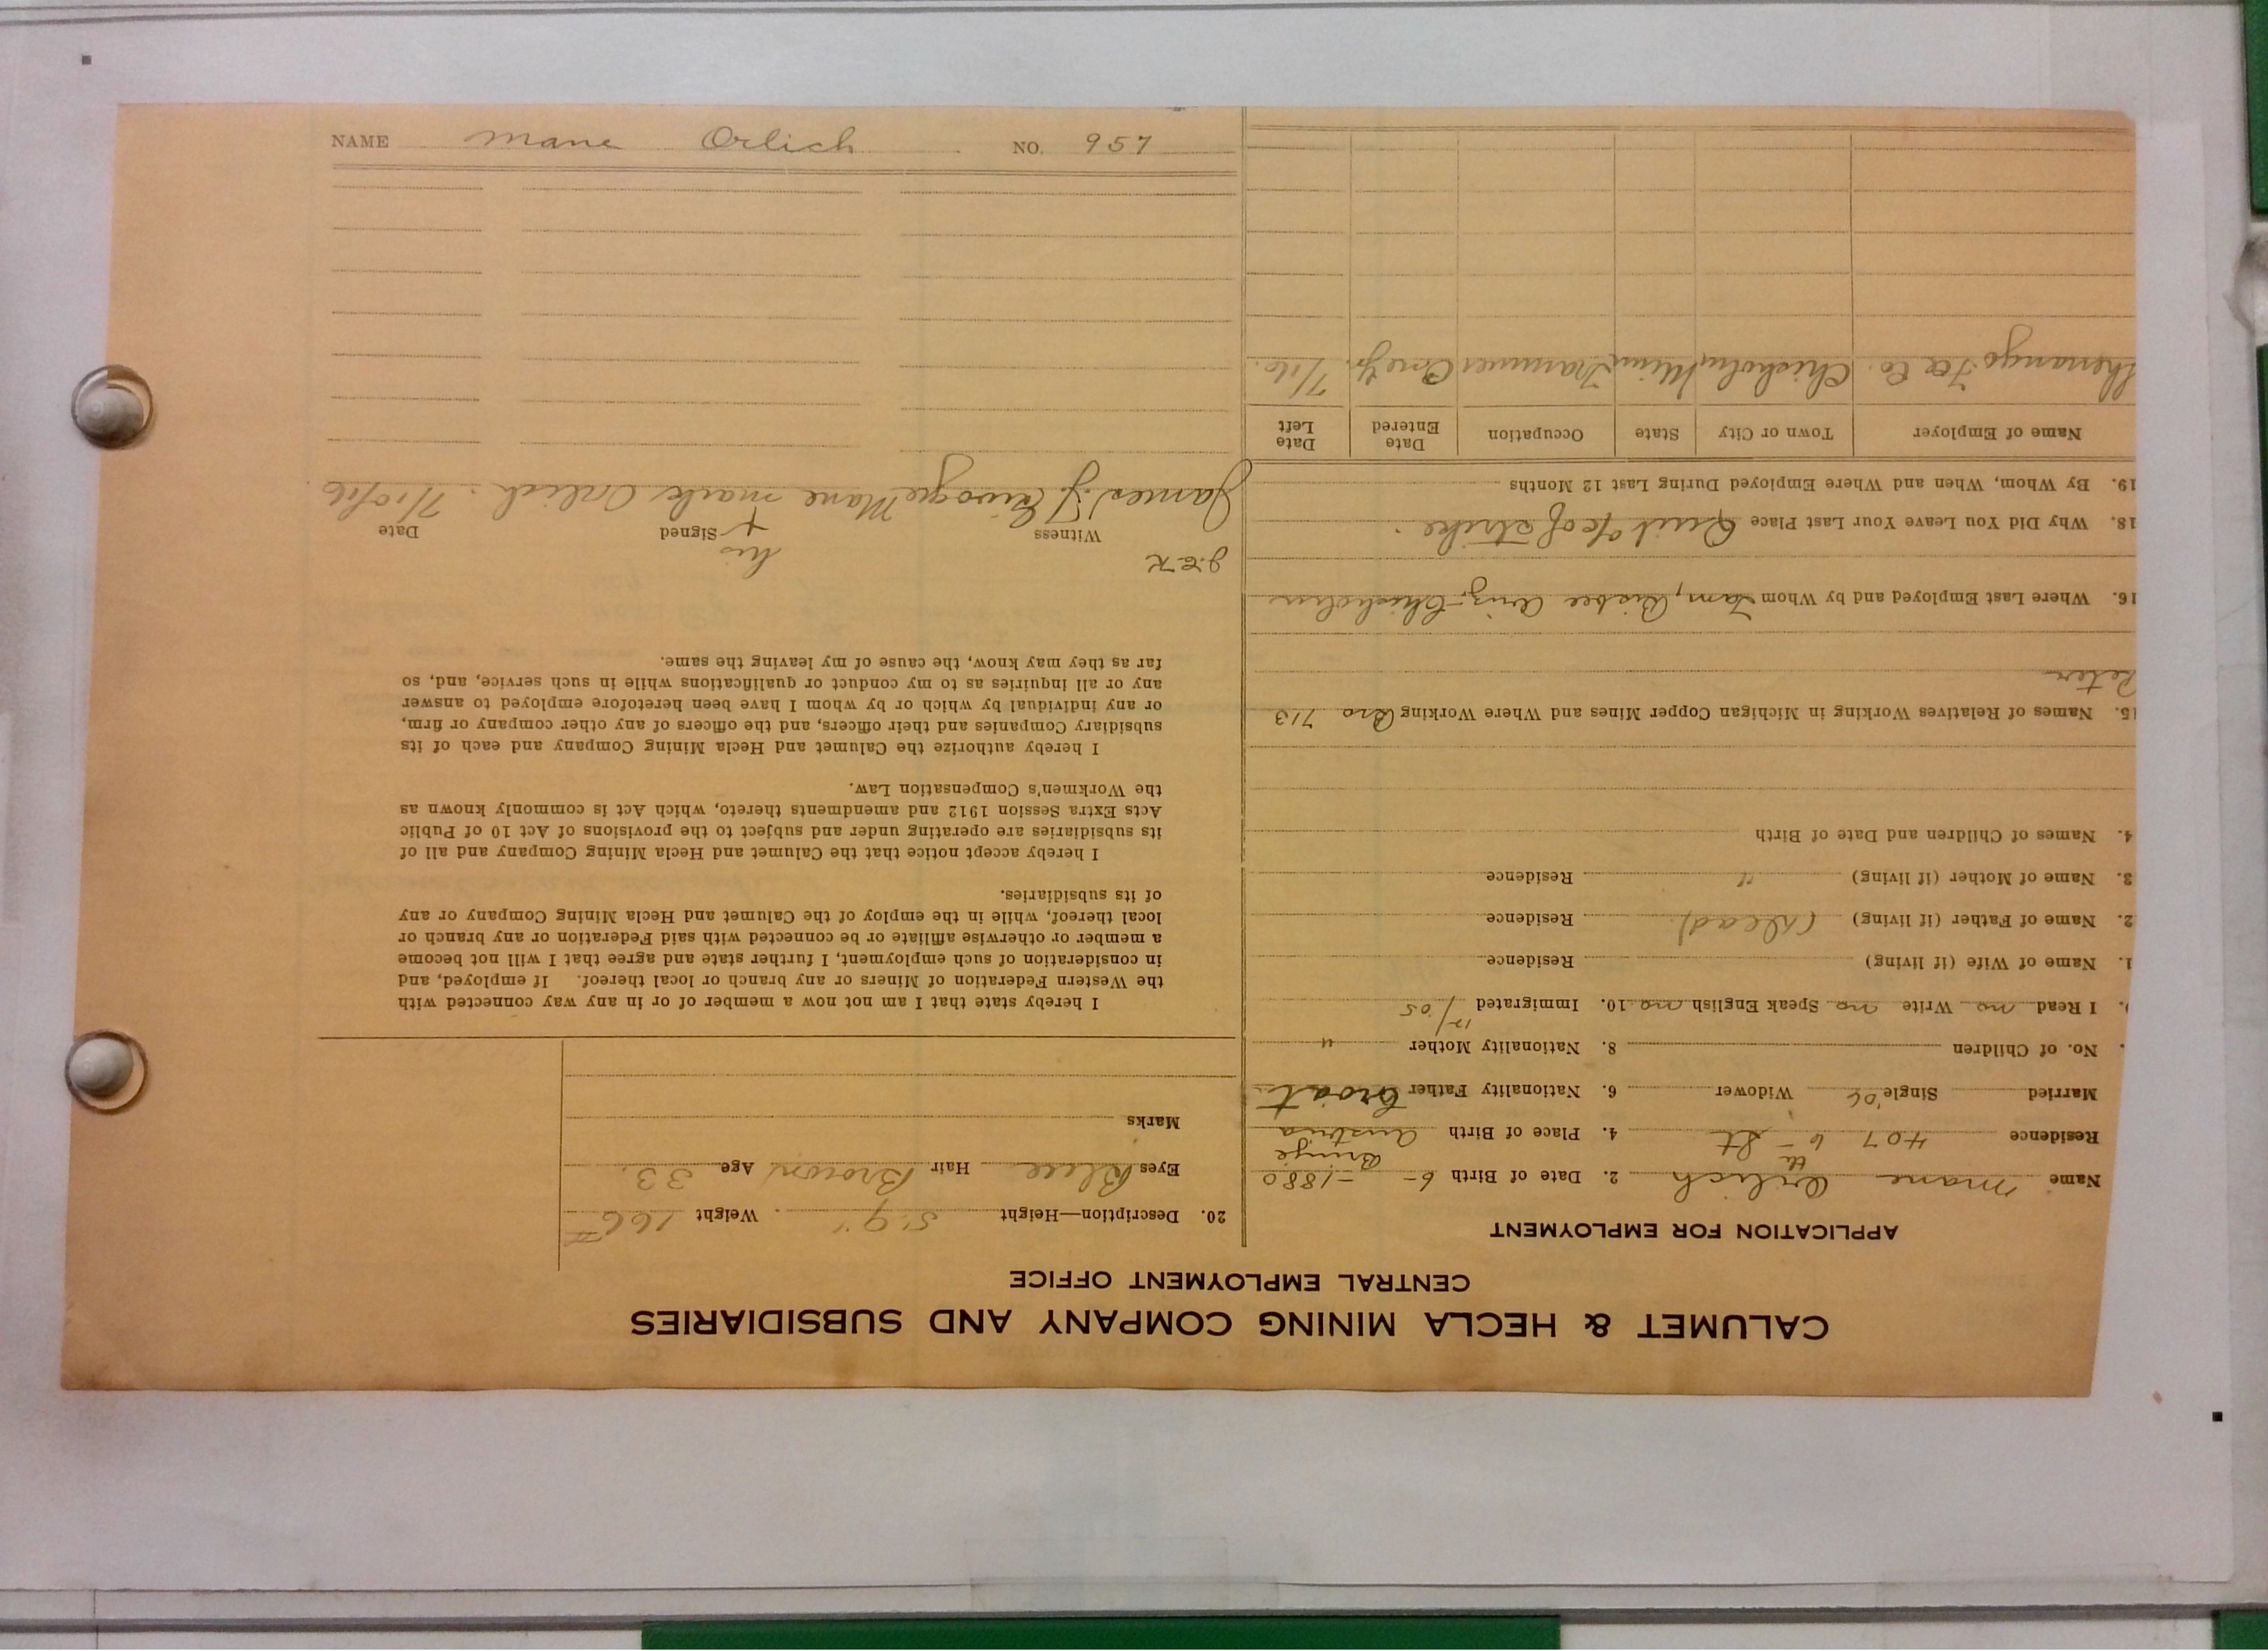 NAME Mane Orlich NO. 957
CALUMET & HECLA MINING COMPANY AND SUBSIDIARIES
CENTRAL EMPLOYMENT OFFICE
APPLICATION FOR EMPLOYMENT
Name Mane Orlich 2. Date of Birth 6- -1880
Residence 407 6th St 4. Place of Birth Austria
Married Single Widower 6. Nationality Father Croat
No. of Children 8. Nationality Mother "
I Read no Write no Speak English no 10. Immigrated 12/05
1. Name of Wife (if living) Residence
2. Name of Father (if living) (Dead) Residence
3. Name of Mother (if living) " Residence
4. Names of Children and Date of Birth
15. Names of Relatives Working in Michigan Copper Mines and Where Working Bro 713
Peter
16. Where Last Employed and by Whom Bisbee Ariz. Chisholm
18. Why Did You Leave Your Last Place Quit of strike.
19. By Whom, When and Where Employed During Last 12 Months
Name of Employer Town or City State Occupation Date Entered Date Left
Shenango Co. Chisholm Minn Trammer One yr. 7/16.
20. Description—Height 5'9" Weight 166#
Eyes Blue Hair Brown Age 33.
Marks
I hereby state that I am not now a member of or in any way connected with
the Western Federation of Miners or any branch or local thereof. If employed, and
in consideration of such employment, I further state and agree that I will not become
a member or otherwise affiliate or be connected with said Federation or any branch or
local thereof, while in the employ of the Calumet and Hecla Mining Company or any
of its subsidiaries.
I hereby accept notice that the Calumet and Hecla Mining Company and all of
its subsidiaries are operating under and subject to the provisions of Act 10 of Public
Acts Extra Session 1912 and amendments thereto, which Act is commonly known as
the Workmen's Compensation Law.
I hereby authorize the Calumet and Hecla Mining Company and each of its
subsidiary Companies and their officers, and the officers of any other company or firm,
or any individual by which or by whom I have been heretofore employed to answer
any or all inquiries as to my conduct or qualifications while in such service, and, so
far as they may know, the cause of my leaving the same.
J.E.K. his
Witness Signed x Date
James Mane mark Orlich. 7/10/16